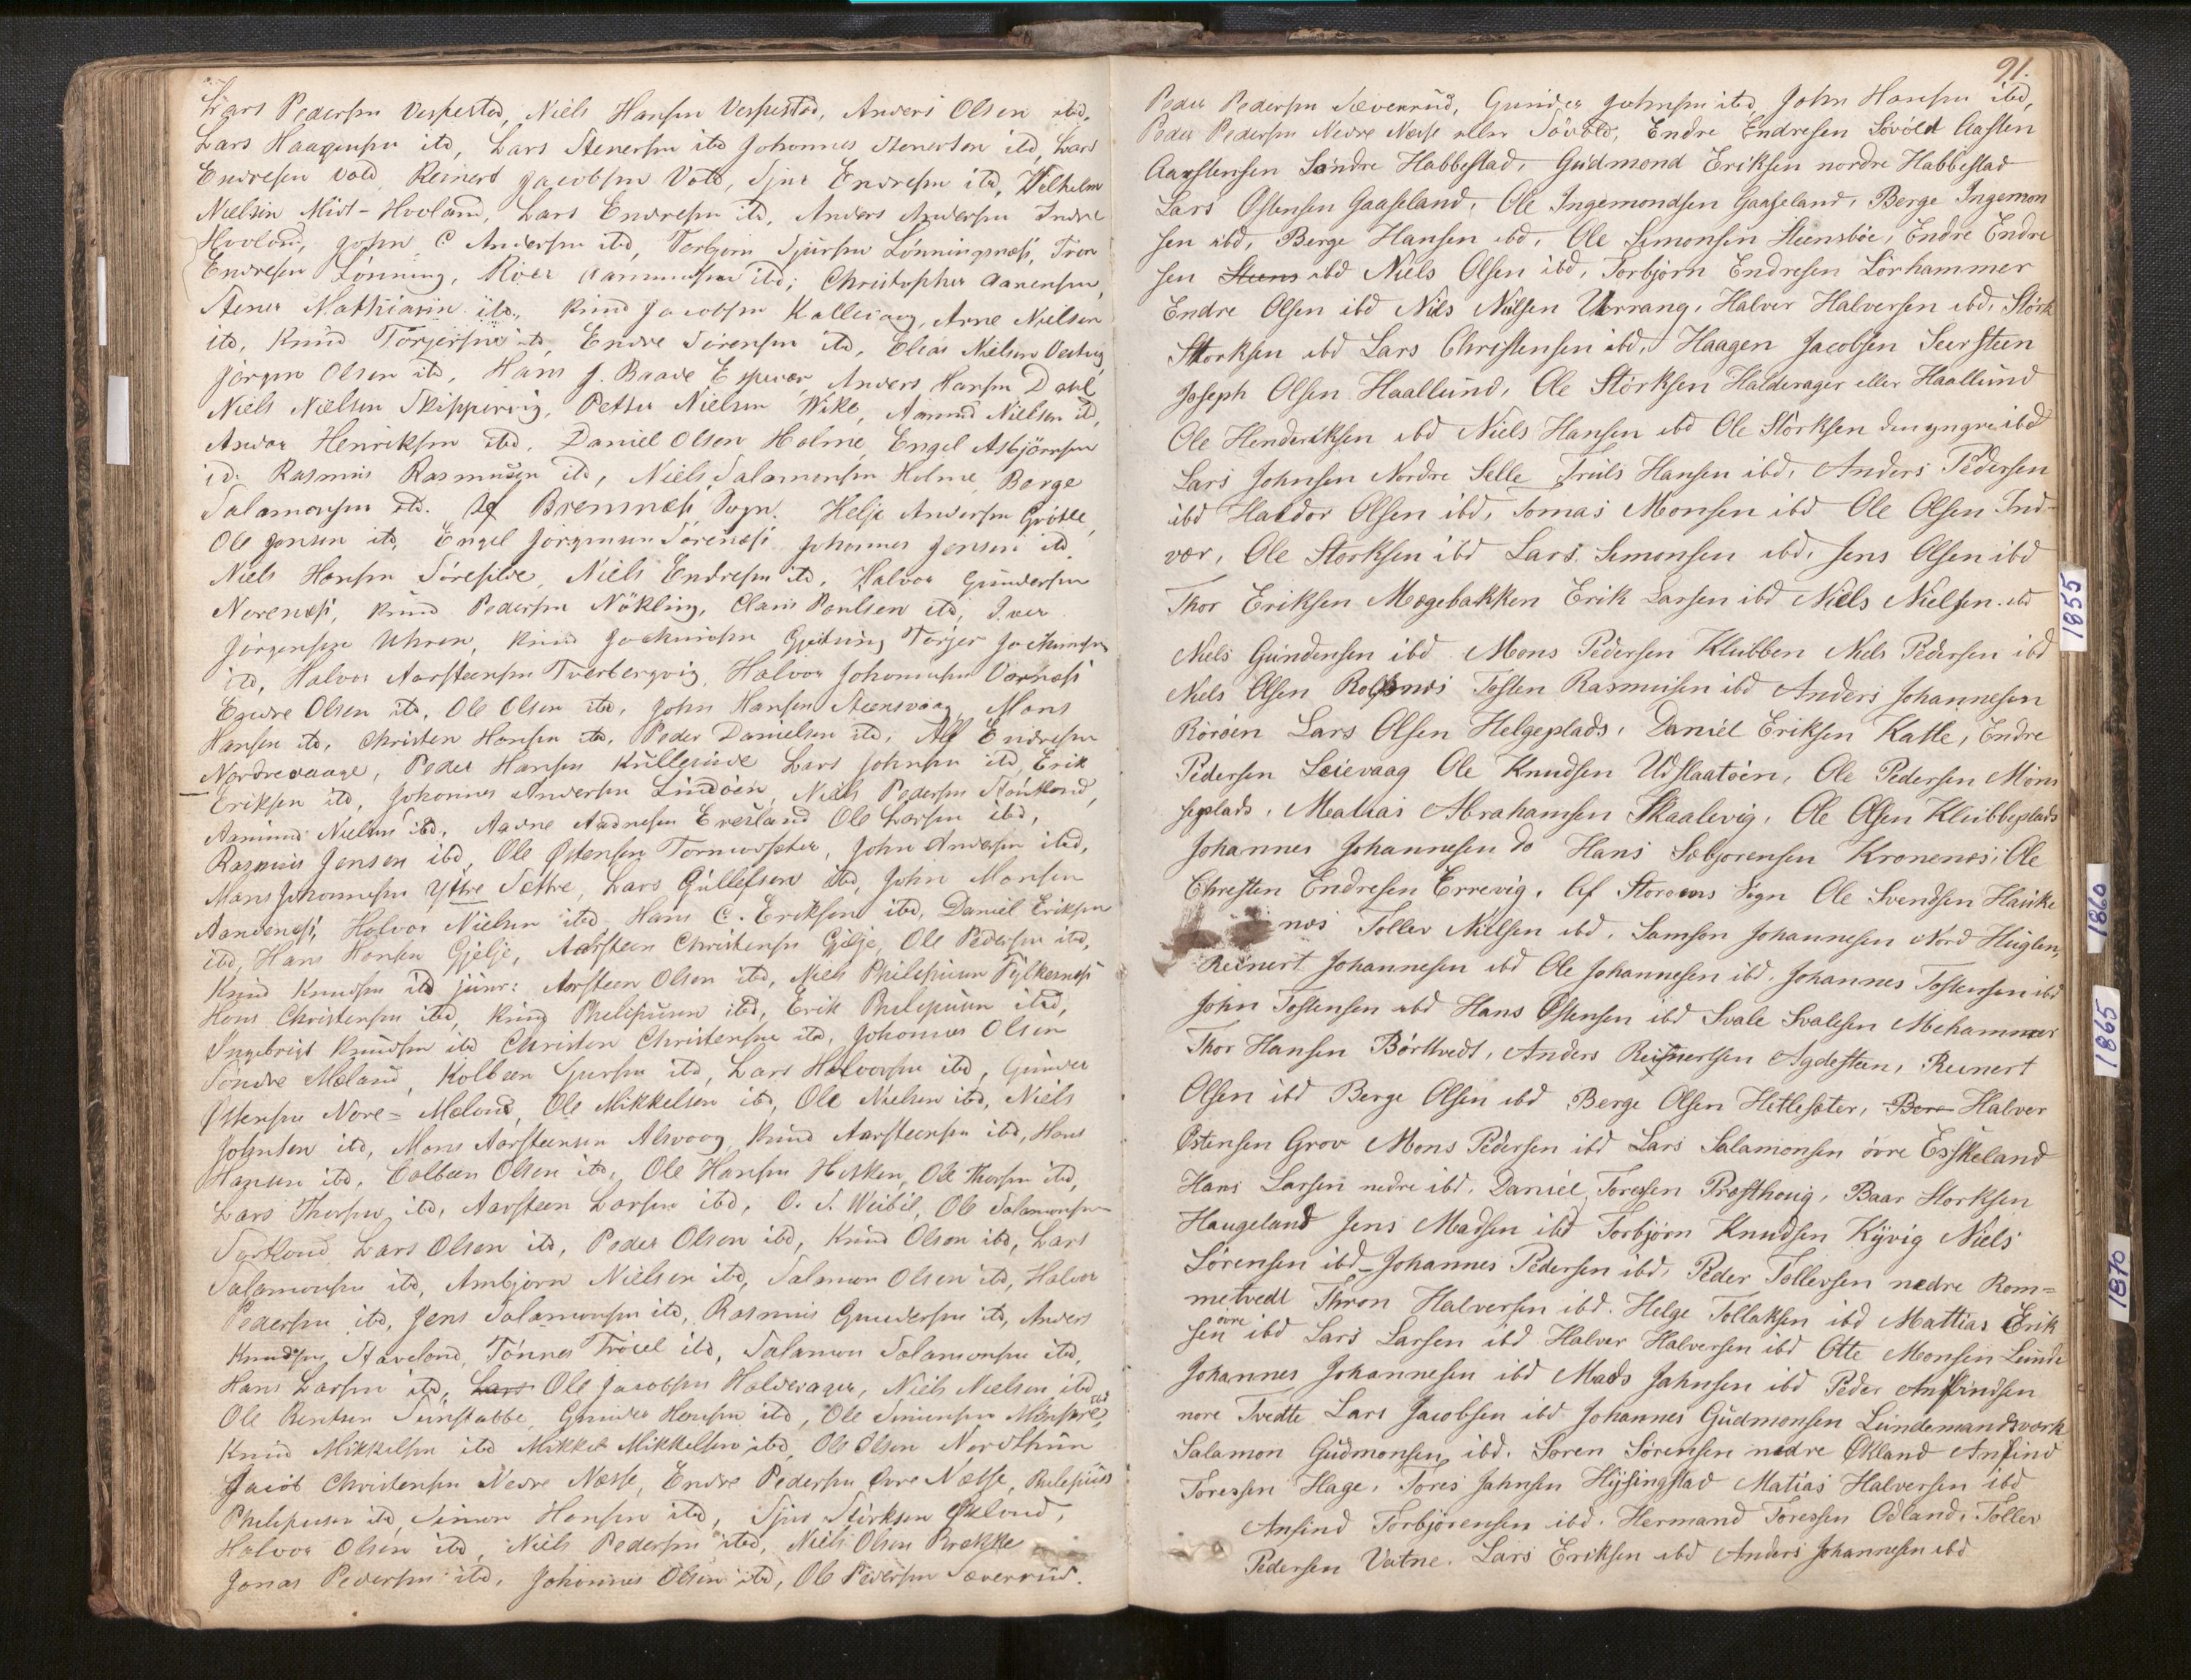 Lars Pedersen Vespestad, Niels Hansen Vespestad, Anders Olsen ibd,
Lars Haagensen ibd, Lars Stenersen ibd Johannes Stenersen ibd, Lars
Endresen Vold Reinert Jacobsen Vold, Sjur Endresen ibd, Wilhelm
Nielsen Midt-Hovland, Lars Endresen ibd, Anders Andersen Indre
Hovland, John C Andersen ibd, Torbjørn Sjursen Lønningsnæs,
Endresen Lønning, ibd; Christopher Aanensen,
Stener Mathiasen ibd, Knud Jacobsen Kallevaag, Arne Nielsen
ibd, Knud Torjersen ibd, Endre Sørensen ibd, Elias Nielsen
Jørgen Olsen ibd, Hans J. Baade Espevær Anders Hansen Dahl
Niels Nielsen Skippervig, Petter Nielsen Wike, Aamund Nielsen ibd,
Henriksen ibd, Daniel Olsen Holme, Engel Asbjørnsen
id. Rasmus Rasmusen ibd, Niels Salamonsen Holme Børge
Salamonsen ibd. Af Bremnæs Sogn. Helje Andersen Grøtle,
Ole Jensen ibd, Engel Jørgensen Sørenæs Johannes Jensen ibd,
Niels Hansen Sørefilde, Niels Endresen ibd, Halvor Gundersen
Norenæs, Knud Pedersen Nøkling, Claus Poulsen ibd, Iver
Jørgensen Uhren, Knud Jochumsen Gjedung Torjer Jochumsen
ibd, Halvor Aarsteensen Tverborgvig, Halvor Johannesen Vornæs
Endre Olsen ibd, Ole Olsen ibd, John Hansen Steensvaag, Mons
Hansen ibd, Christen Hansen ibd, Peder Danielsen ibd, Alf Endresen
Nordrevaage, Peder Hansen Kulleseide Lars Johnsen ibd, Erik
Eriksen ibd, Johannes Andersen Lindøen, Niels Pedersen Stoutland,
Aamund Nielsen ibd, Aadne Aadnesen Eresland Ole Larsen ibd,
Rasmus Jensen ibd, Ole Østensen Tornesæter, John Andersen ibd,
Mons Johannesen Yttre Sættre, Lars Gullefsen ibd, John Monsen
Aandenæs, Halvor Nielsen ibd Hans C. Eriksen ibd, Daniel Eriksen
ibd, Hans Hansen Gjelje, Aarsteen Christensen Gjelje, Ole Pedersen ibd,
Knud Knudsen ibd junr: Aarsteen Olsen ibd, Niels Philipusen Fylkesnæs
Hans Christensen ibd, Knud Philipusen ibd, Erik Philipusen ibd,
Ingebrigt Knudsen ibd Christen Christensen ibd, Johannes Olsen
Søndre Meland, Kolbeen Sjursen ibd, Lars Halvorsen ibd, Gunder
Østensen Nore-Meland, Ole Mikkelsen ibd, Ole Nielsen ibd, Niels
Johnsen ibd, Mons Aarsteensen Alsvaag, Knud Aarsteensen ibd, Hans
Hansen ibd, Colbeen Olsen ibd, Ole Hansen Hisken, Ole Thorsen ibd,
Lars Thorsen ibd, Aarsteen Larsen ibd, O. S. Weibel, Ole Salamonsen
Sortland, Lars Olsen ibd, Peder Olsen ibd, Knud Olsen ibd, Lars
Salamonsen ibd, Ambjørn Nielsen ibd, Salamon Olsen ibd, Halvor
Pedersen ibd, Jens Salamonsen ibd, Rasmus Gundersen ibd, Anders
Knudsen Staveland, Tønnes Trøiel ibd, Salamon Salamonsen ibd,
Hans Larsen ibd, Lars Ole Jacobsen Halderager, Niels Nielsen ibd
Ole Berntsen Sunstabbe, Gunder Hansen ibd, Ole Simonsen ibd
Knud Mikkelsen ibd Mikkel Mikkelsen ibd, Ole Olsen Nordthun
Jacob Christensen Nedre Næsse, Endre Pedersen Øvre Næsse, Philipus
Philipusen ibd, Simon Hansen ibd, Sjur Størksen Økland,
Halvor Olsen ibd, Niels Pedersen ibd, Niels Olsen Brække
Jonas Pedersen ibd, Johannes Olsen ibd, Ole Pedersen Sæverud.
91.
Peder Pedersen Sæverud, Gunder Johnsen ibd, John Hansen ibd,
Peder Pedersen Nedre Næss eller Søvold, Endre Endresen Søvold Aasten
Aarstensen Søndre Habbestad, Gudmond Eriksen nordre Habbestad
Lars Østensen Gaaseland, Ole Ingemondsen Gaaseland, Berge Ingemon
sen ibd, Berge Hansen ibd, Ole Simonsen Steensbøe, Endre Endre
sen Steens ibd Niels Olsen ibd, Torbjørn Endresen Lørhammer
Endre Olsen ibd Nils Nilsen Urrang, Halver Halversen ibd, Størk
Størksen ibd Lars Christensen ibd, Haagen Jacobsen Seersteen
Joseph Olsen Haallund, Ole Størksen Halderager eller Haallund
Ole Henderiksen ibd Niels Hansen ibd Ole Størksen den yngre ibd
Lars Johnsen Nordre Selle Truls Hansen ibd, Anders Pedersen
ibd Haldor Olsen ibd, Tomas Monsen ibd Ole Olsen Ind-
vær, Ole Storksen ibd Lars Simonsen ibd, Jens Olsen ibd
Thor Eriksen Mogebakken Erik Larsen ibd Niels Nielsen ibd
Niels Gundersen ibd Mons Pedersen Klubben Niels Pedersen ibd
Niels Olsen Rolfsnes Tosten Rasmusen ibd Anders Johannesen
Rørøen Lars Olsen Helgeplads, Daniel Eriksen Katle, Endre
Pedersen Leievaag Ole Knudsen Udslaatøen, Ole Pedersen Mons
seplads, Matias Abrahamsen Skaalevig, Ole Olsen Klubbeplads
Johannes Johannesen do Hans Sebjørensen Kronenes, Ole
Christen Endresen Errevig, Af Storøens Sogn Ole Svendsen Hauke
nes Tollev Nilsen ibd, Samson Johannesen Nord Huglen,
Reinert Johannesen ibd Ole Johannesen ibd, Johannes Tostensen ibd
John Tostensen ibd Hans Østensen ibd Svale Svalesen Mehammer
Thor Hansen Børtvedt, Anders Reinertsen Agdesteen, Reinert
Olsen ibd Berge Olsen ibd Berge Olsen Hetlesæter, Ber Halver
Østensen Grov Mons Pedersen ibd Lars Salamonsen øvre Eskeland
Hans Larsen nedre ibd, Daniel Toresen Presthoug, Baar Storksen
Haugeland Jens Madsen ibd Torbjørn Knudsen Kyvig Niels
Sørensen ibd Johannes Pedersen ibd, Peder Tollevsen nedre Rom=
metvedt Thron Halversen ibd, Helge Tollaksen ibd Mattias Erik
sen øvre ibd Lars Larsen ibd Halver Halversen ibd Otte Monsen Lunde
Johannes Johannesen ibd Mads Jahnsen ibd Peder Anfindsen
nore Tvedte Lars Jacobsen ibd Johannes Gudmonsen Leindemandsverk
Salamon Gudmonsen ibd, Søren Sørensen nedre Økland Anfind
Toressen Hage, Tores Jahnsen Hysingstad Matias Halversen ibd
Anfind Torbjørensen ibd, Hermand Toressen Odland, Tollev
Pedersen Vatne, Lars Eriksen ibd Anders Johannesen ibd
1855
1860
1865
1870